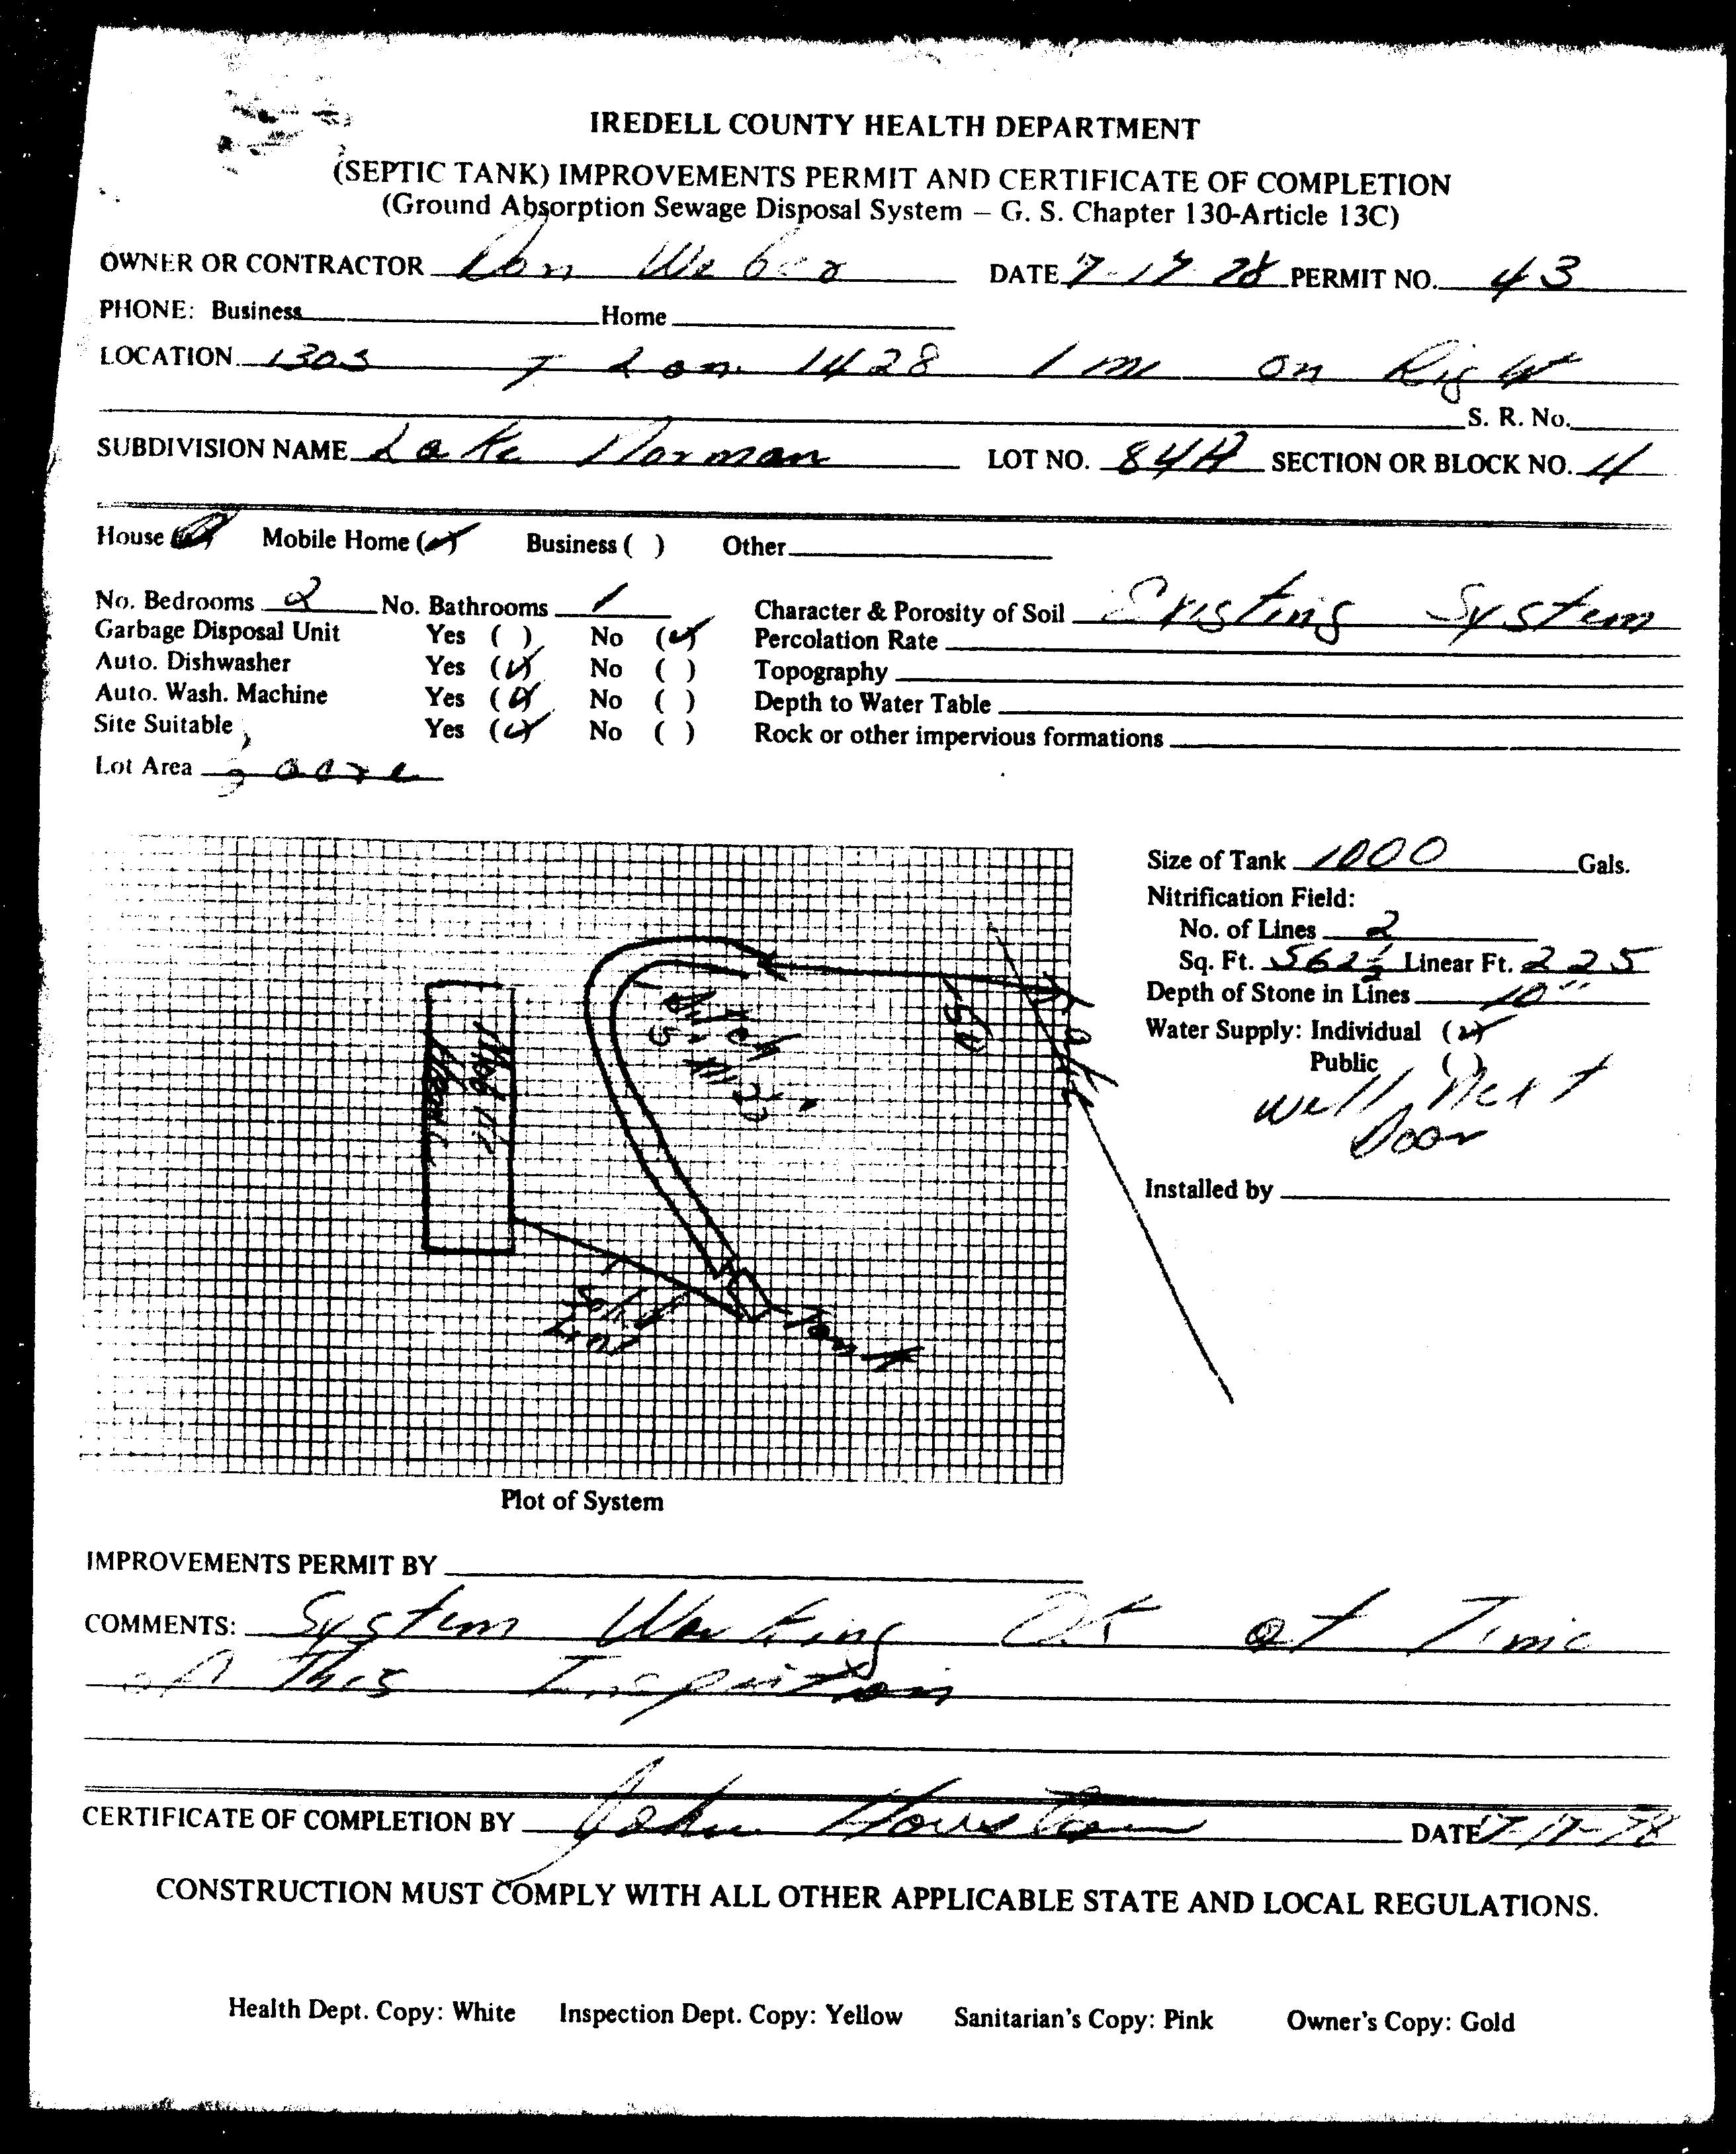 IREDELL COUNTY HEALTH DEPARTMENT
(SEPTIC TANK) IMPROVEMENTS PERMIT AND CERTIFICATE OF COMPLETION
(Ground Absorption Sewage Disposal System – G. S. Chapter 130-Article 13C)
OWNER OR CONTRACTOR Don Weber DATE 7-17-78 PERMIT NO. 43
PHONE: Business Home
LOCATION 1303 T L on 1428 1 mi on Right
S. R. No.
SUBDIVISION NAME Lake Norman LOT NO. 84A SECTION OR BLOCK NO. 4
House Mobile Home (✓) Business ( ) Other
No. Bedrooms 2 No. Bathrooms 1 Character & Porosity of Soil Existing System
Garbage Disposal Unit Yes ( ) No (✓) Percolation Rate
Auto. Dishwasher Yes (✓) No ( ) Topography
Auto. Wash. Machine Yes (✓) No ( ) Depth to Water Table
Site Suitable Yes (✓) No ( ) Rock or other impervious formations
Lot Area acre
Size of Tank 1000 Gals.
Nitrification Field:
No. of Lines 2
Sq. Ft. 562½ Linear Ft. 225
Depth of Stone in Lines 10"
Water Supply: Individual (✓)
Public ( )
Well Next
Door
Installed by
Mobile
Home
150
Lake
Tank
Plot of System
IMPROVEMENTS PERMIT BY
COMMENTS: System Working OK at Time
of This Inspection
CERTIFICATE OF COMPLETION BY John Houston DATE 7-17-78
CONSTRUCTION MUST COMPLY WITH ALL OTHER APPLICABLE STATE AND LOCAL REGULATIONS.
Health Dept. Copy: White Inspection Dept. Copy: Yellow Sanitarian's Copy: Pink Owner's Copy: Gold